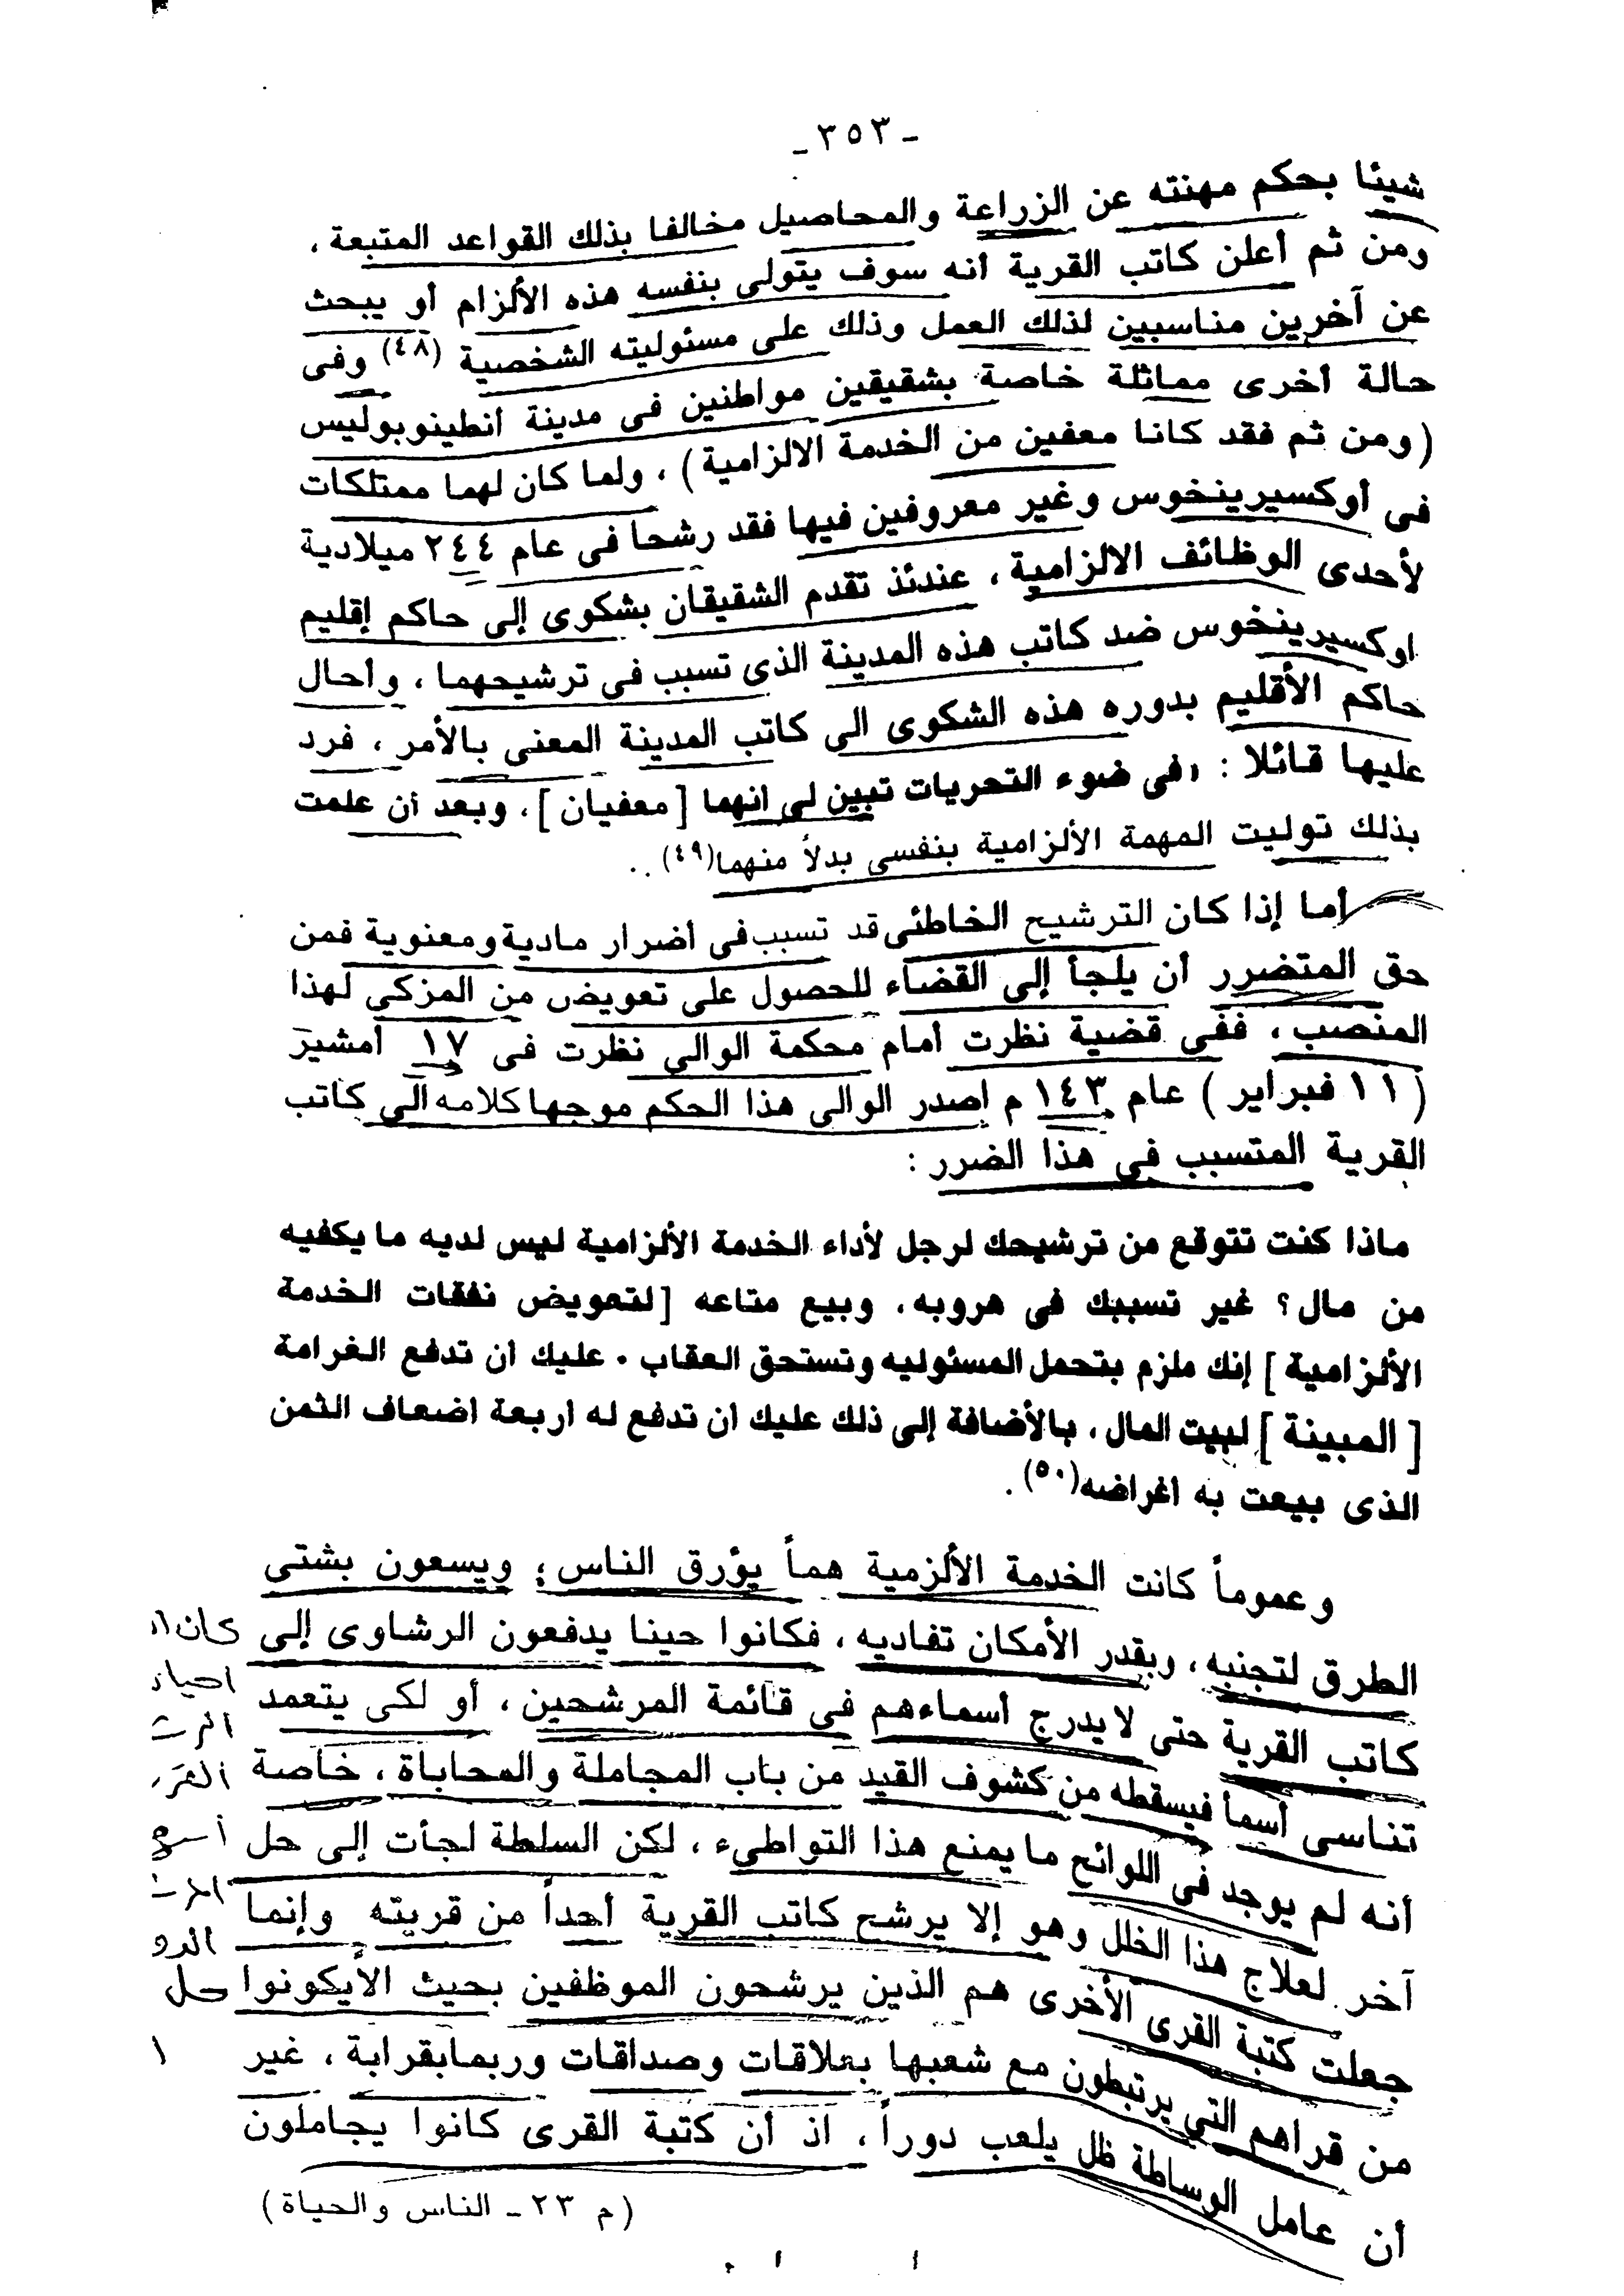 - ٣٥٣ -
شيئا بحكم مهنته عن الزراعة والمحاصيل مخالفا بذلك القواعد المتبعة ،
ومن ثم أعلن كاتب القرية أنه سوف يتولى بنفسه هذه الألزام أو يبحث
عن آخرين مناسبين لذلك العمل وذلك على مسئوليته الشخصية (٤٨) وفى
حالة أخرى مماثلة خاصة بشقيقين مواطنين فى مدينة أنطينوبوليس
( ومن ثم فقد كانا معفين من الخدمة الالزامية ) ، ولما كان لهما ممتلكات
فى أوكسيرينخوس وغير معروفين فيها فقد رشحا فى عام ٢٤٤ ميلادية
لأحدى الوظائف الالزامية ، عندئذ تقدم الشقيقان بشكوى إلى حاكم إقليم
اوكسيرينخوس ضد كاتب هذه المدينة الذى تسبب فى ترشيحهما ، وأحال
حاكم الأقليم بدوره هذه الشكوى الى كاتب المدينة المعنى بالأمر ، فرد
عليها قائلا : « فى ضوء التحريات تبين لى أنهما [ معفيان ] ، وبعد أن علمت
بذلك توليت المهمة الألزامية بنفسى بدلاً منهما (٤٩) ..
أما إذا كان الترشيح الخاطئى قد تسبب فى أضرار مادية ومعنوية فمن
حق المتضرر أن يلجأ إلى القضاء للحصول على تعويض من المزكى لهذا
المنصب ، ففى قضية نظرت أمام محكمة الوالى نظرت فى ١٧ أمشير
( ١١ فبراير ) عام ١٤٣ م أصدر الوالى هذا الحكم موجها كلامه الى كاتب
القرية المتسبب فى هذا الضرر :
ماذا كنت تتوقع من ترشيحك لرجل لأداء الخدمة الألزامية ليس لديه ما يكفيه
من مال ؟ غير تسببك فى هروبه ، وبيع متاعه [ لتعويض نفقات الخدمة
الألزامية ] إنك ملزم بتحمل المسئوليه وتستحق العقاب . عليك أن تدفع الغرامة
[ المبينة ] لبيت المال ، بالأضافة إلى ذلك عليك أن تدفع له أربعة اضعاف الثمن
الذى بيعت به اغراضه (٥٠) .
وعموماً كانت الخدمة الألزمية هماً يؤرق الناس ؛ ويسعون بشتى
الطرق لتجنبه ، وبقدر الأمكان تفاديه ، فكانوا حينا يدفعون الرشاوى إلى
كاتب القرية حتى لا يدرج أسماءهم فى قائمة المرشحين ، أو لكى يتعمد
تناسى أسمأ فيسقطه من كشوف القيد من باب المجاملة والمحاباة ، خاصة
أنه لم يوجد فى اللوائح ما يمنع هذا التواطىء ، لكن السلطة لجأت إلى حل
آخر لعلاج هذا الخلل وهو إلا يرشح كاتب القرية أحداً من قريته وإنما
جعلت كتبة القرى الأخرى هم الذين يرشحون الموظفين بحيث الأيكونوا
من قراهم التى يرتبطون مع شعبها بعلاقات وصداقات وربما بقرابة ، غير
أن عامل الوساطة ظل يلعب دوراً ، اذ أن كتبة القرى كانوا يجاملون
( م ٢٣ - الناس والحياة )
كان
حل